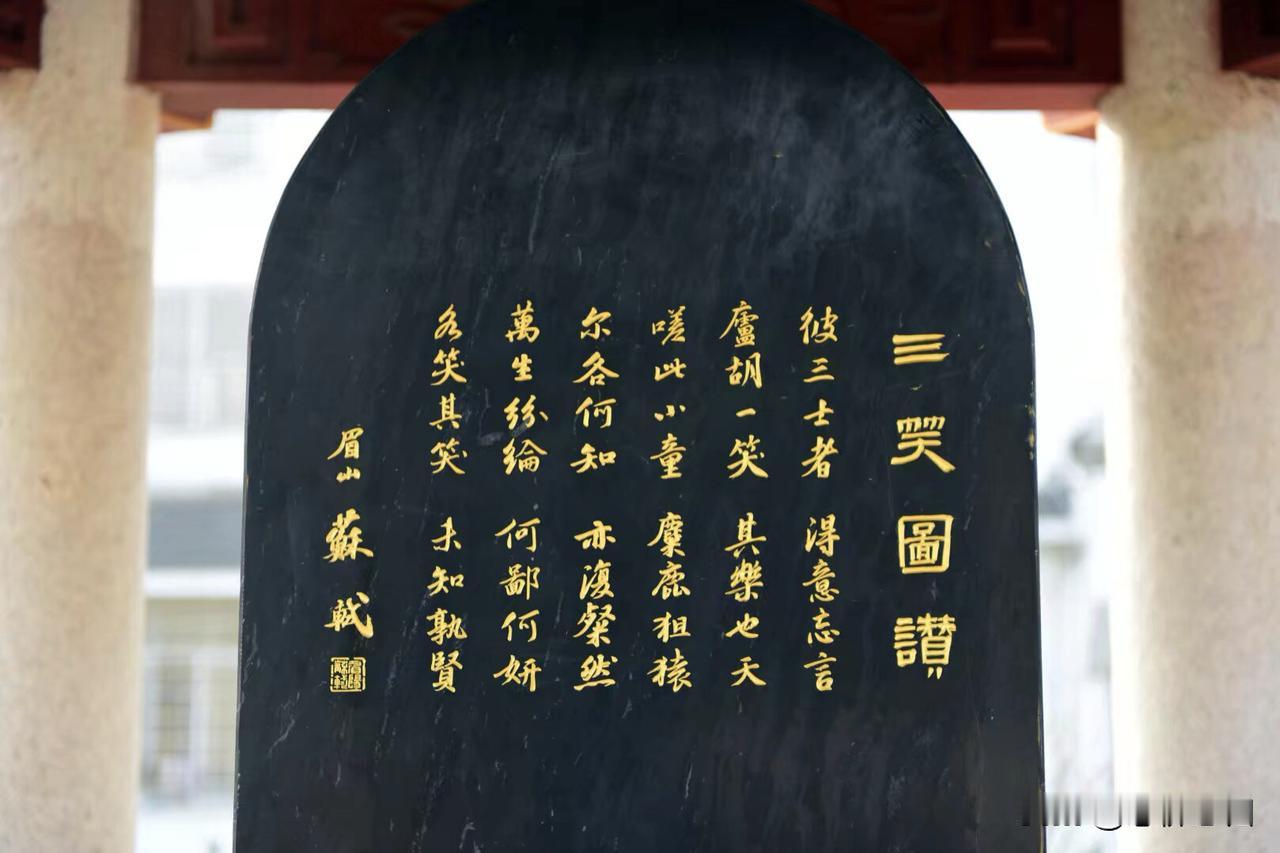 三笑圖讃
彼三士者 得意忘言
廬胡一笑 其樂也天
嗟此小童 麋鹿狙猿
尔各何知 亦復粲然
萬生紛綸 何鄙何妍
各笑其笑 未知孰賢
眉山 蘇軾